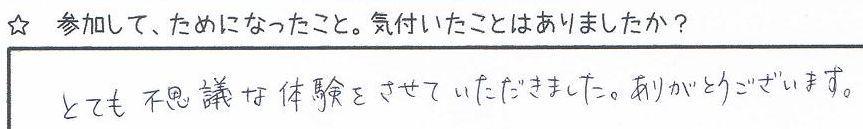 ☆ 参加して、ためになったこと。気付いたことはありましたか？
とても不思議な体験をさせていただきました。ありがとうございます。